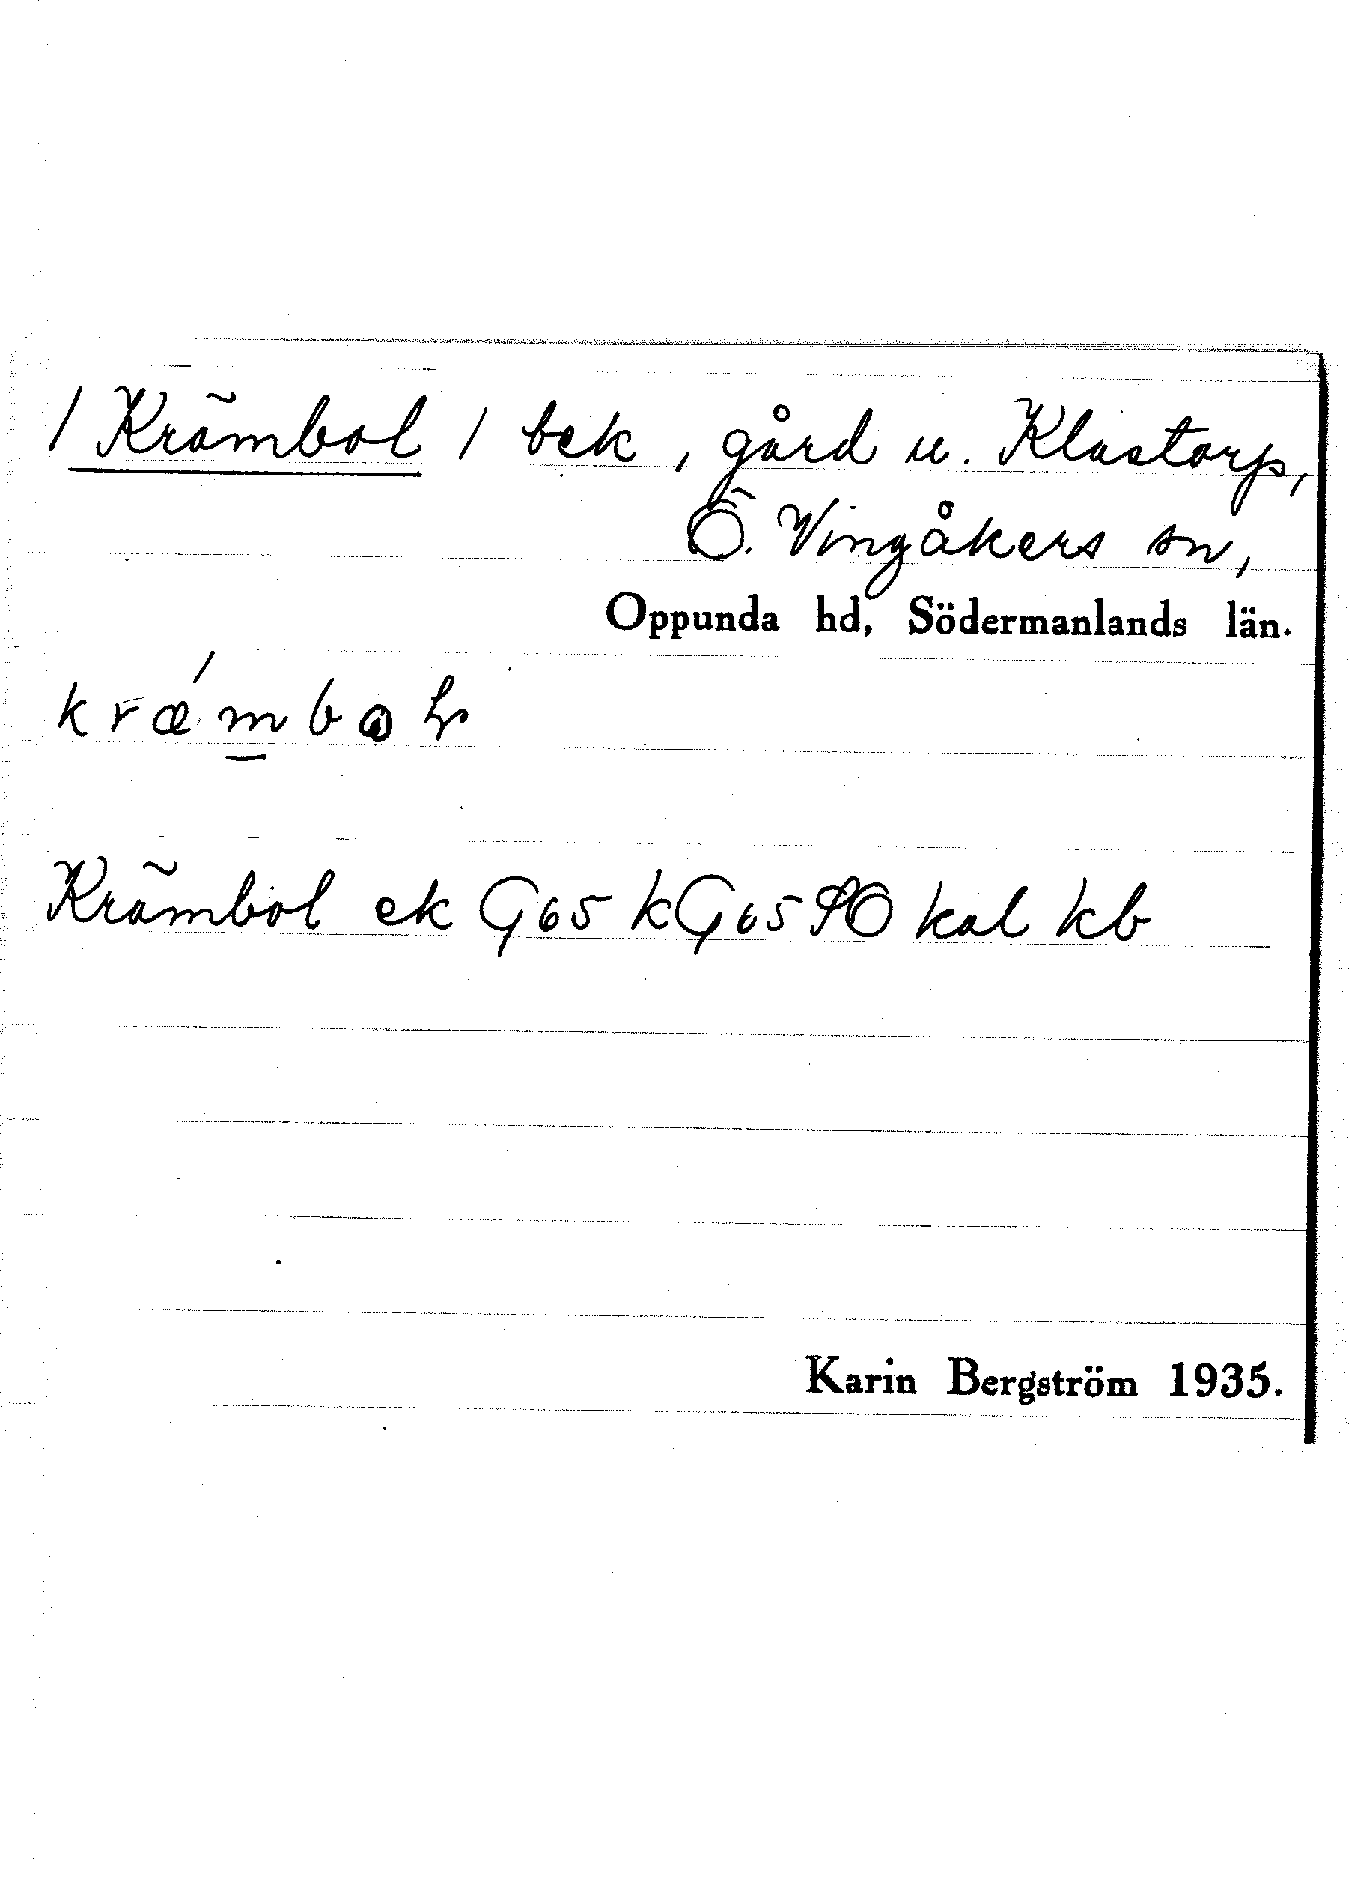 / Krämbol / bek, gård u. Klastorp,
Ö. Vingåkers sn,
Oppunda hd, Södermanlands län.
Krämbol ek G65 kG65 kal kb
Karin Bergström 1935.